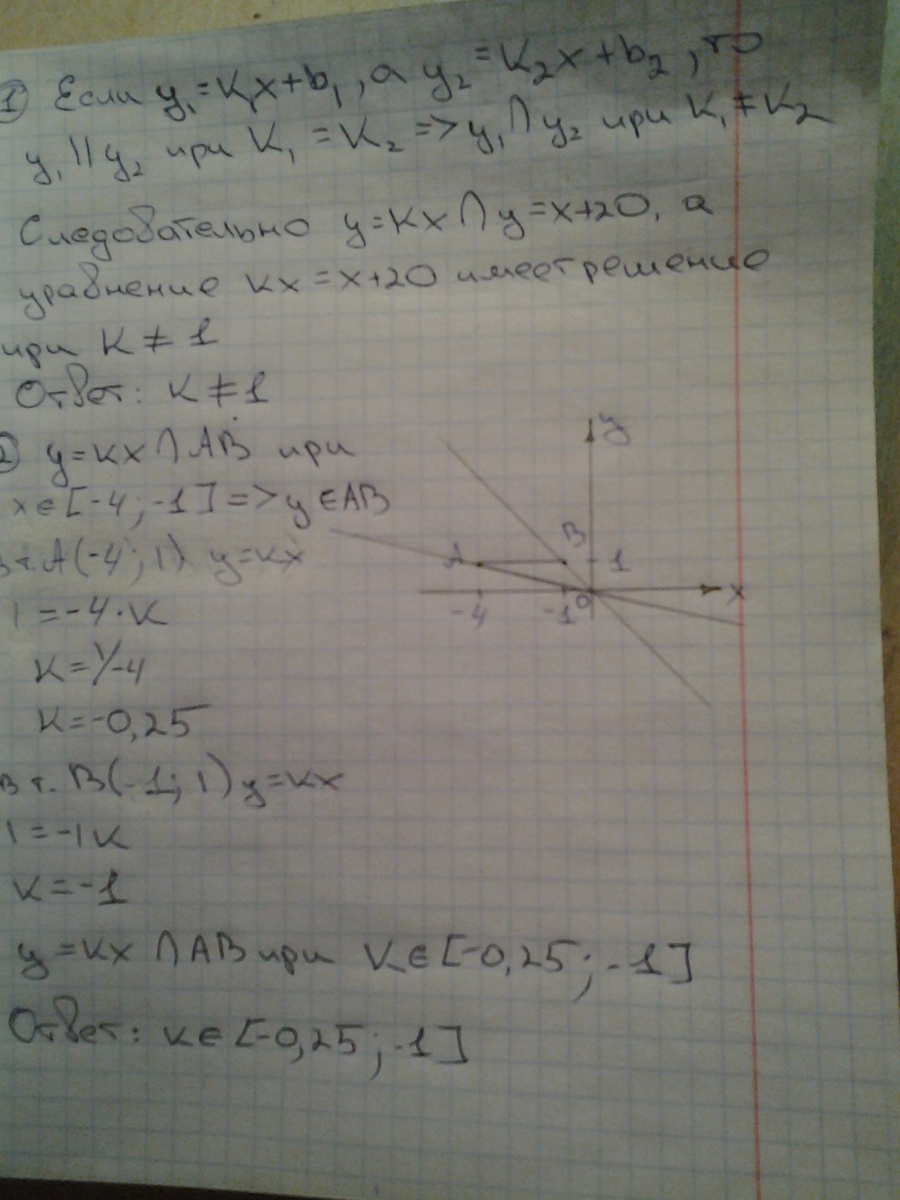 1 Если y₁=K₁x+b₁, а y₂=K₂x+b₂, то
y₁ || y₂ при K₁ = K₂ => y₁ ∩ y₂ при K₁ ≠ K₂
Следовательно y=Kx ∩ y=x+20, а
уравнение Kx=x+20 имеет решение
при K ≠ 1
Ответ: K ≠ 1
2 y=Kx ∩ AB при
x∈[-4;-1] => y∈AB
в т. A(-4;1) y=Kx
1=-4·K
K=1/-4
K=-0,25
в т. B(-1;1) y=Kx
1=-1K
K=-1
y=Kx ∩ AB при K∈[-0,25;-1]
Ответ: K∈[-0,25;-1]
y
B
A
1
-4
-1
0
x